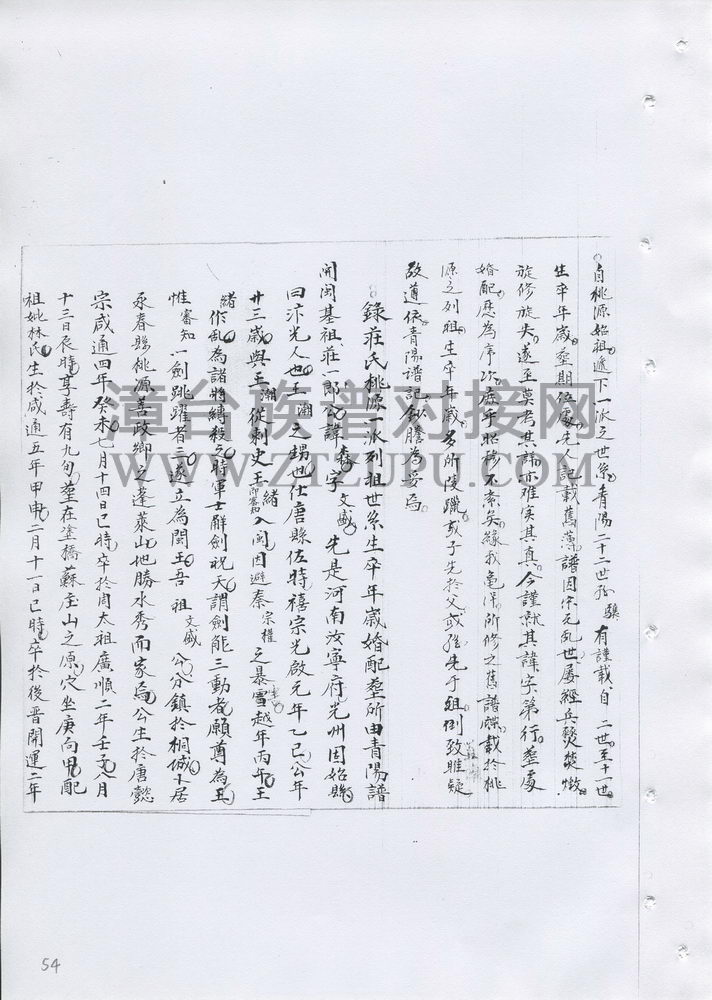 自桃源始祖遞下一派之世系青陽二十二世孫驥有謹載自二世至十一世
生卒年歲塟期位處先人記載舊薄譜因宋元乱世屡經兵燹焚燬
旋修旋失遂至莫考其諱亦难实其真今謹就其諱字第行塟處
婚配歷為序次庶乎昭穆不紊矣緣我毫浮所修之舊譜牒載於桃
源之列祖生卒年歲多所陵躐或子先於父或孫先于祖倒致雖疑
故遵依青陽譜記錄謄為妥焉
錄莊氏桃源一派列祖世系生卒年歲婚配塟所由青陽譜
開閩基祖莊一郎公諱森字文盛先是河南汝寧府光州固始縣
曰汴光人也王潮之甥也仕唐縣佐時禧宗光啟元年乙巳公年
廿三歲與王潮從刺史王緒入閩因避秦宗權之暴雪越年丙午王
緒作乱為諸將縛殺之時軍士辭劍祝天謂劍能三動者願尊為王
惟審知一劍跳躍者三遂立為閩王吾祖文盛公分鎮於桐城卜居
永春縣桃源善政鄉之蓬萊山地勝水秀而家焉公生於唐懿
宗咸通四年癸未七月十四日巳時卒於周太祖廣順二年壬子八月
十三日辰時享壽有九旬塟在塗橋蘇庄山之原穴坐庚向甲配
祖妣林氏生於咸通五年甲申二月十一日巳時卒於後晉開運二年
54
漳台族谱对接网
WWW.ZTZUPU.COM